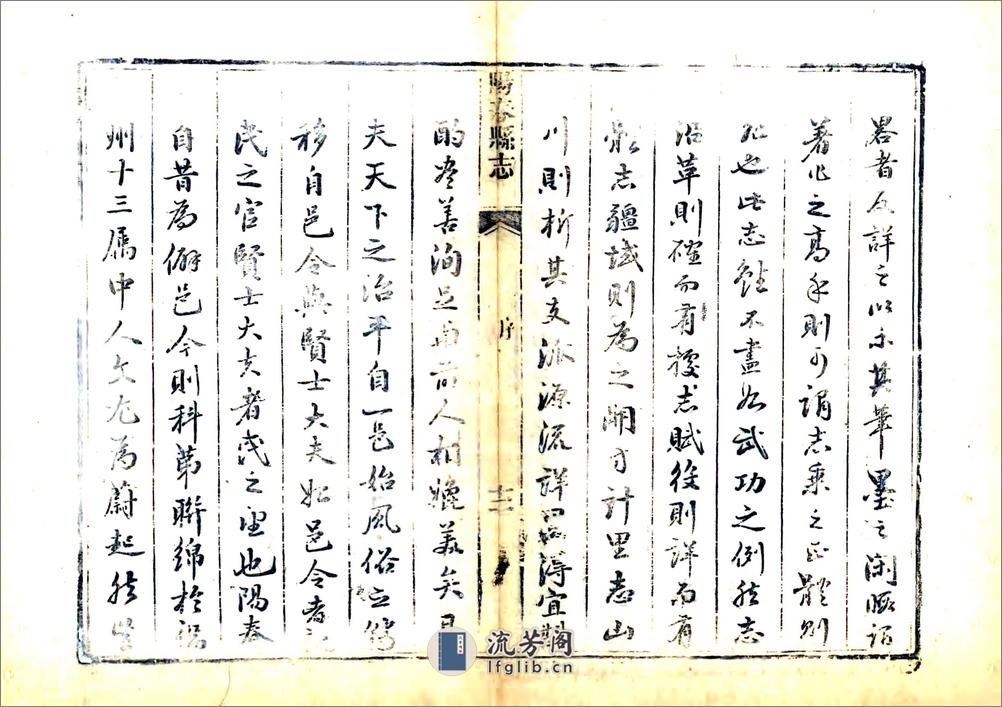 畧者反詳之以示其筆墨之閑暇謂
著作之高手則可謂志乘之正體則
非也此志雖不盡如武功之例然志
沿革則確而有據志賦役則詳而有
體志疆域則為之開方計里志山
川則析其支派源流詳畧得宜斟
陽春縣志
序
十二
酌盡善洵足與前人相媲美矣且
夫天下之治平自一邑始風俗之轉
移自邑令與賢士大夫始邑令者
民之官賢士大夫者民之望也陽春
自昔為僻邑今則科第聯綿於
州十三屬中人文尤為蔚起然
流芳閣
lfglib.cn